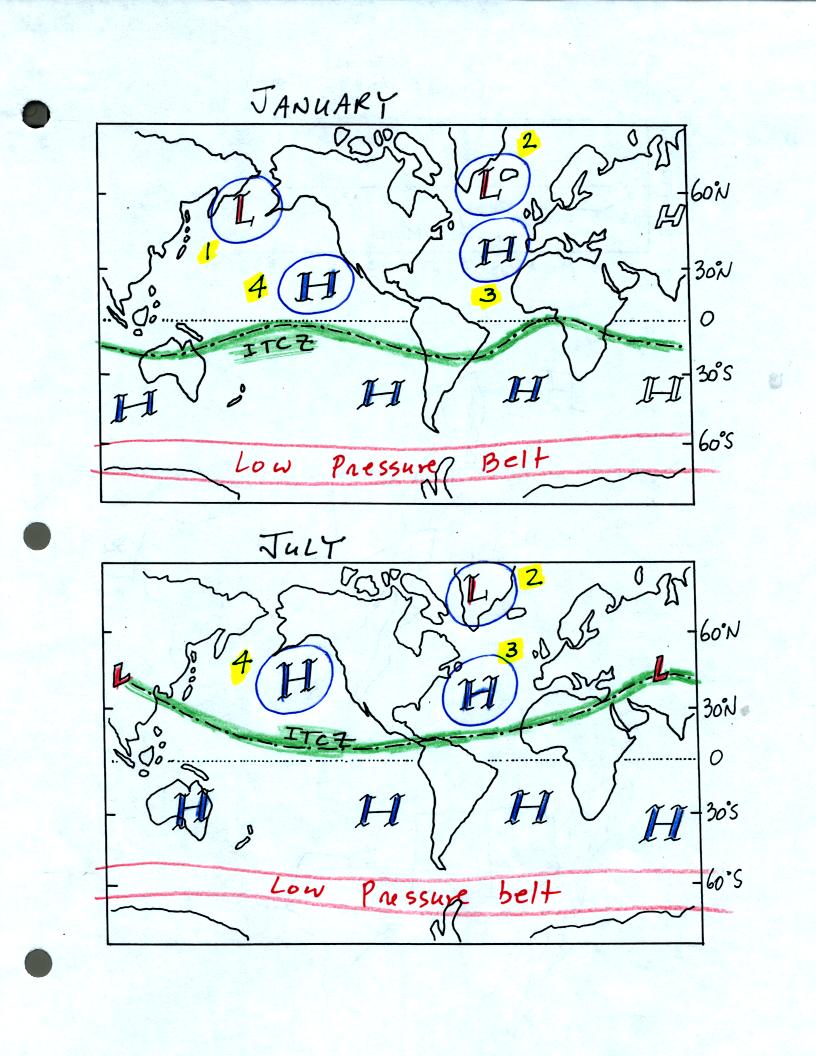 JANUARY
2
L L 60°N
1 H H
4 H 3 30°N
0
ITCZ
30°S
H H H H
60°S
Low Pressure Belt
JULY
L 2
60°N
4 H 3
L H L
30°N
ITCZ
0
H H H H 30°S
60°S
Low Pressure belt